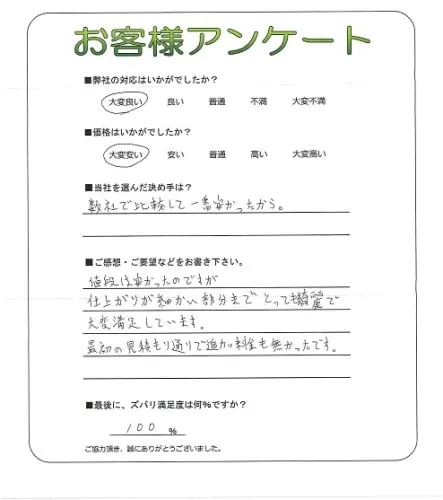 お客様アンケート
■弊社の対応はいかがでしたか?
大変良い 良い 普通 不満 大変不満
■価格はいかがでしたか?
大変安い 安い 普通 高い 大変高い
■当社を選んだ決め手は?
数社で比較して一番安かったから。
■ご感想・ご要望などをお書き下さい。
値段は安かったのですが
仕上がりが細かい部分まで とっても綺麗で
大変満足しています。
最初の見積もり通りで追加料金も無かったです。
■最後に、ズバリ満足度は何%ですか?
100 %
ご協力頂き、誠にありがとうございました。